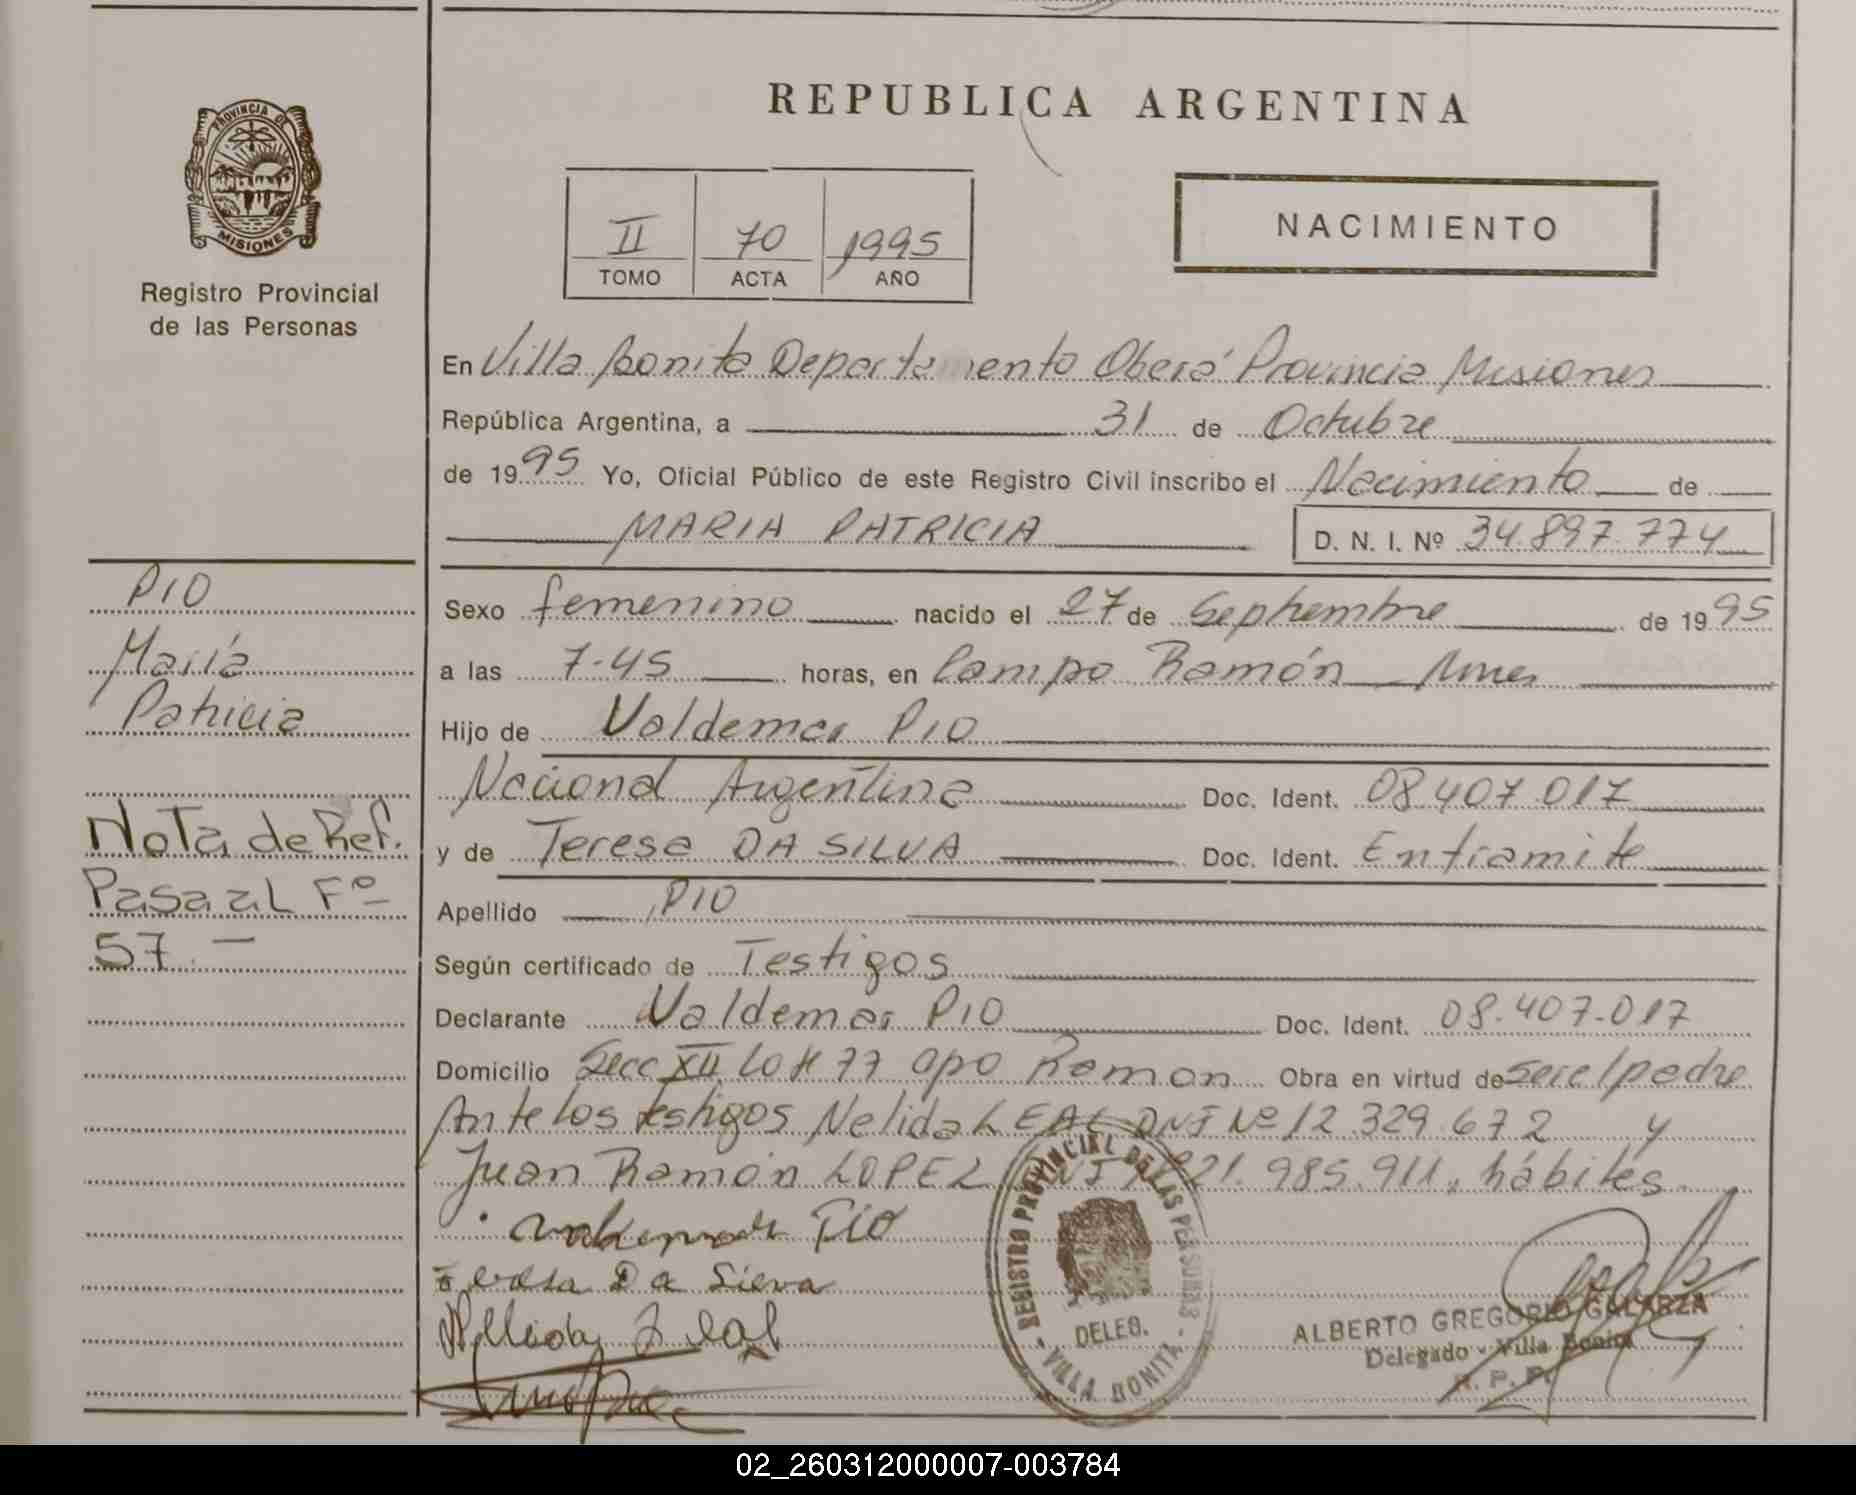 PROVINCIA DE
MISIONES
Registro Provincial
de las Personas
REPUBLICA ARGENTINA
II 70 1995
TOMO ACTA AÑO
NACIMIENTO
En Villa Bonita Departamento Oberá Provincia Misiones
República Argentina, a 31 de Octubre
de 1995 Yo, Oficial Público de este Registro Civil inscribo el Nacimiento de
MARIA PATRICIA D. N. I. Nº 34.897.774
Sexo femenino nacido el 27 de Septiembre de 1995
a las 7-45 horas, en Campo Ramón Mnes
Hijo de Valdemar PIO
Nacional Argentina Doc. Ident. 08.407.017
y de Teresa DA SILVA Doc. Ident. Entramite
Apellido PIO
Según certificado de Testigos
Declarante Valdemar PIO Doc. Ident. 08.407.017
Domicilio Secc XII Lote 77 Cpo Ramon Obra en virtud de ser el padre
Ante los testigos Nelida LEAL DNI Nº 12.329.672 y
Juan Ramón LOPEZ DNI 21.985.911, hábiles.
PIO
María
Patricia
Nota de Ref.
Pasa al Fº
57 -
Pio
Teresa Da Silva
REGISTRO PROVINCIAL DE LAS PERSONAS
DELEG.
- VILLA BONITA -
ALBERTO GREGORIO GALARZA
Delegado - Villa Bonita
R. P. P.
02_260312000007-003784